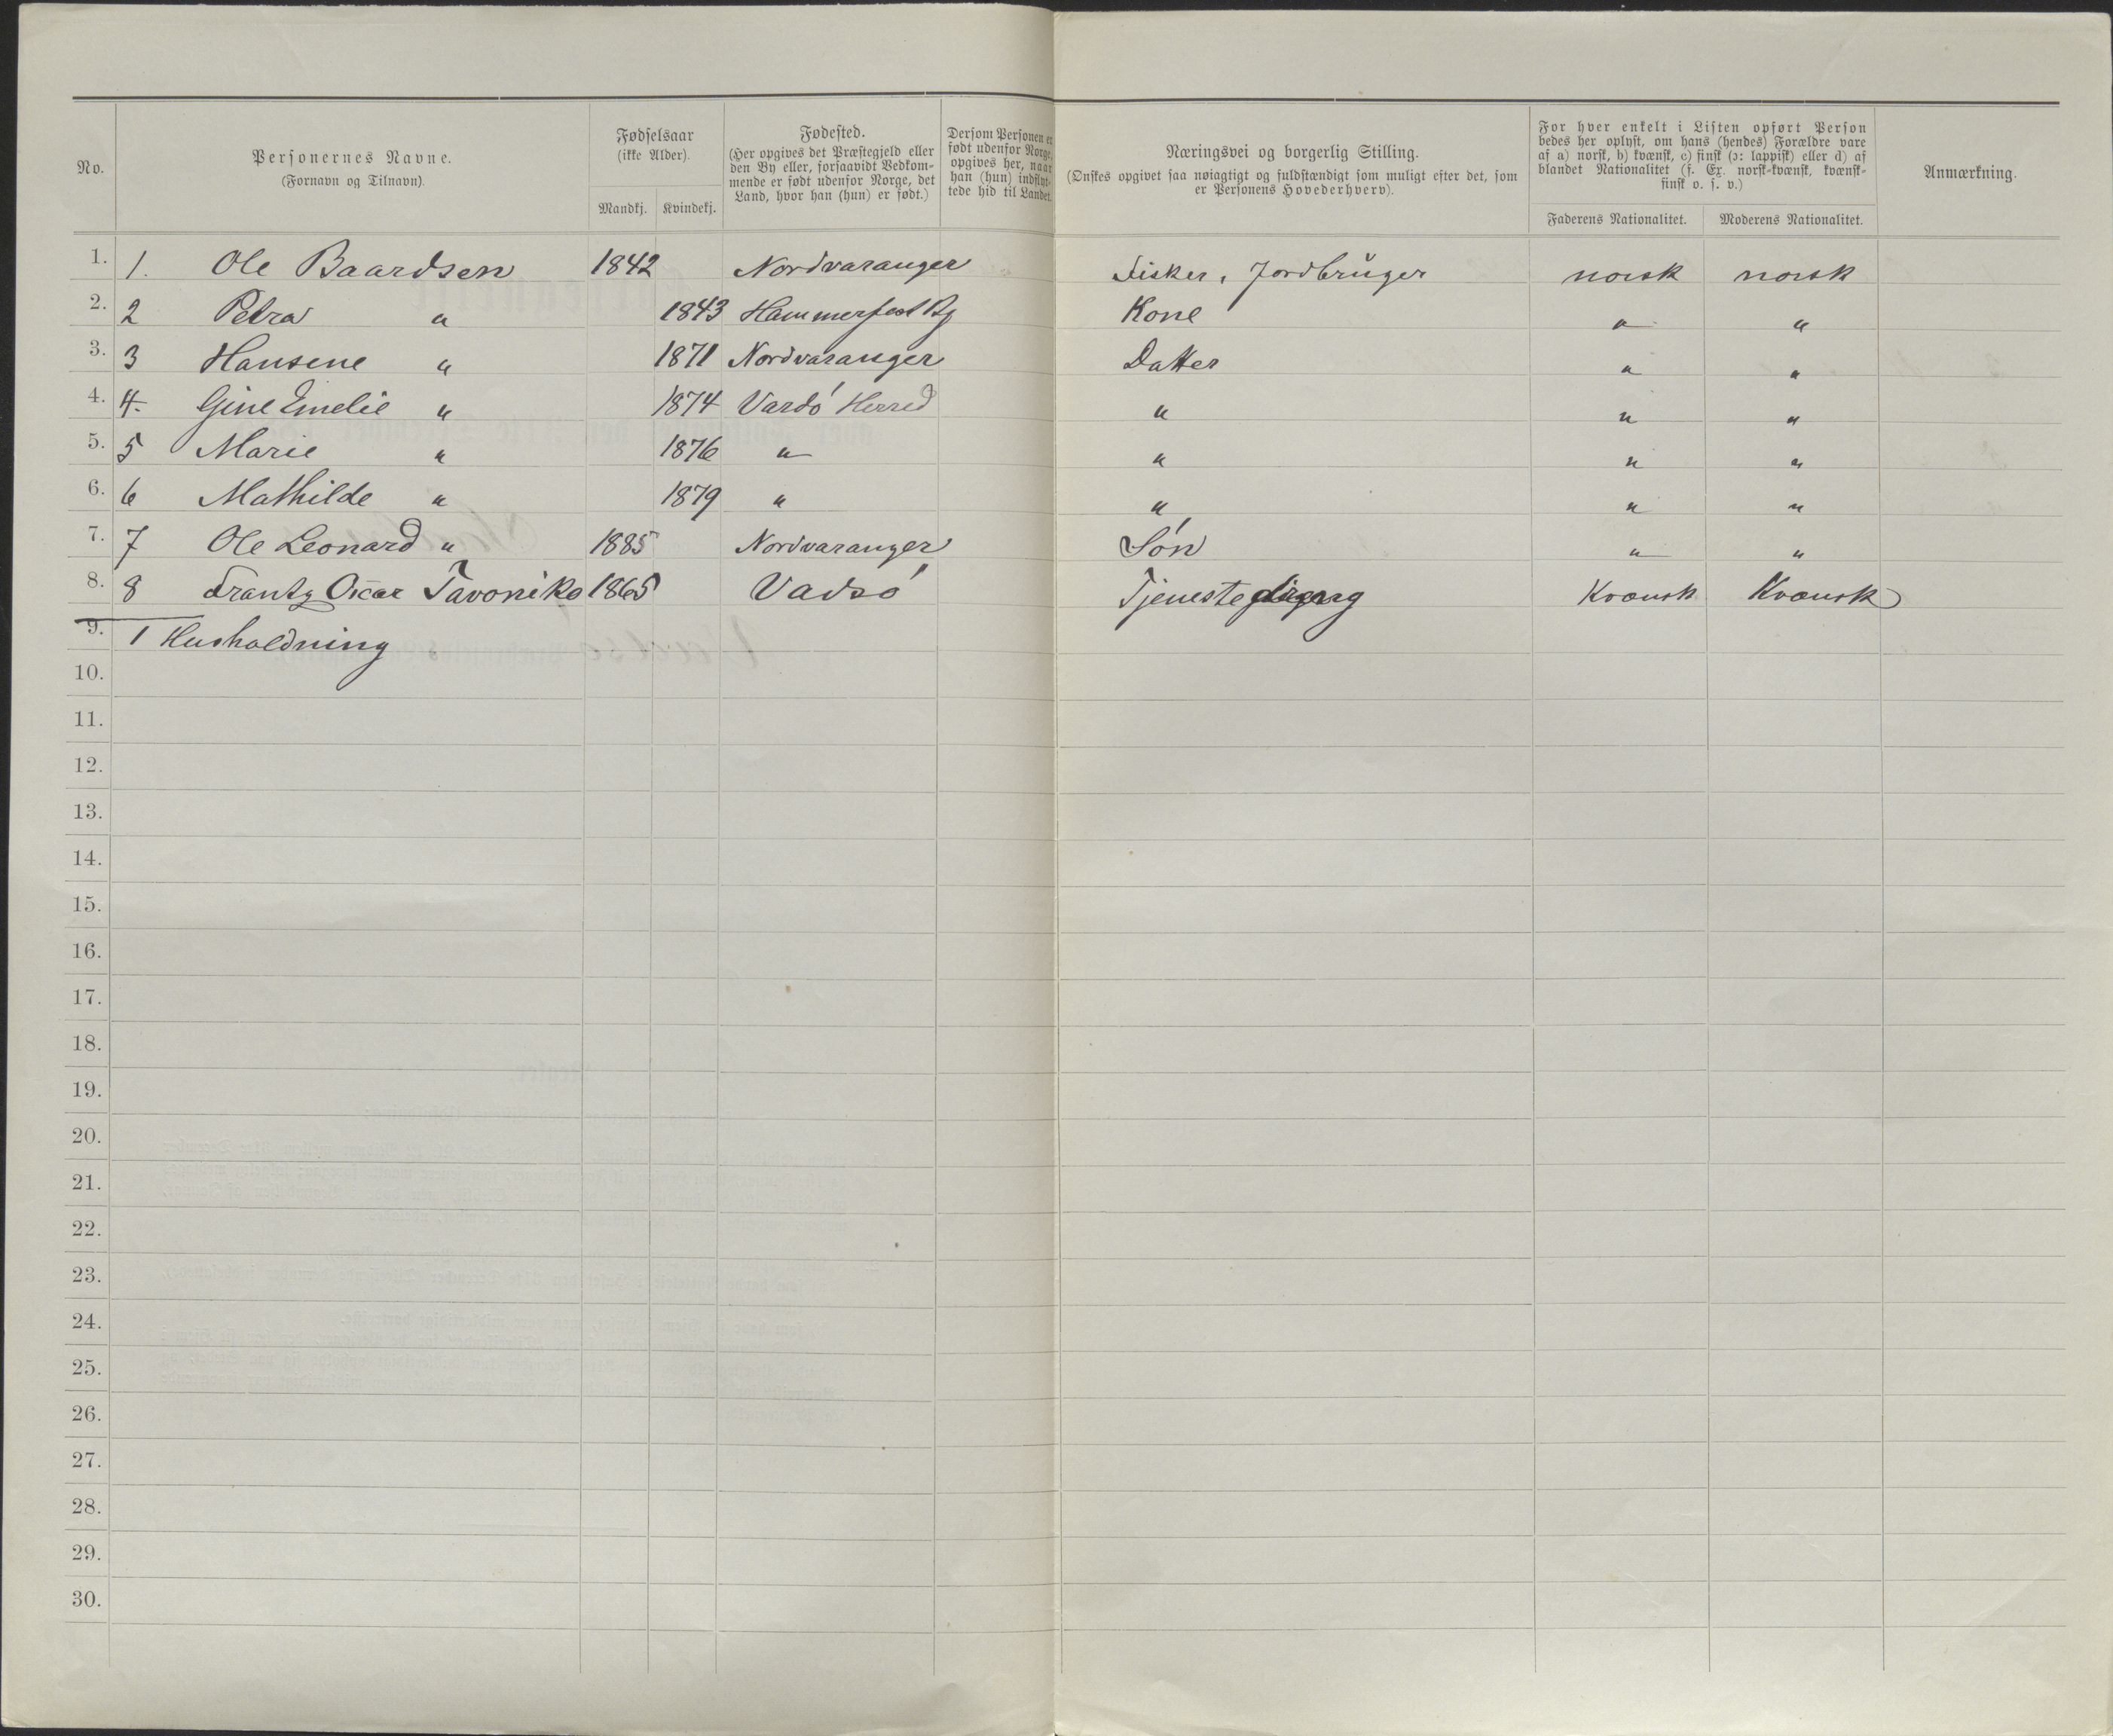 No.
Personernes Navne.
(Fornavn og Tilnavn).
Fødselsaar
(ikke Alder).
Mandkj. Kvindekj.
Fødested.
(Her opgives det Præstegjeld eller
den By eller, forsaavidt Vedkom-
mende er født udenfor Norge, det
Land, hvor han (hun) er født.)
Dersom Personen er
født udenfor Norge,
opgives her, naar
han (hun) indflyt-
tede hid til Landet.
Næringsvei og borgerlig Stilling.
(Ønskes opgivet saa nøiagtigt og fuldstændigt som muligt efter det, som
er Personens Hovederhverv).
For hver enkelt i Listen opført Person
bedes her oplyst, om hans (hendes) Forældre vare
af a) norsk, b) kvænsk, c) finsk (ɔ: lappisk) eller d) af
blandet Nationalitet (f. Ex. norsk-kvænsk, kvænsk-
finsk o. s. v.)
Faderens Nationalitet. Moderens Nationalitet.
Anmærkning.
1. 1. Ole Baardsen 1842 Nordvaranger Fisker, Jordbrüger norsk norsk
2. 2 Petra " 1843 Hammerfest By Kone " "
3. 3 Hansine " 1871 Nordvaranger Datter " "
4. 4. Gine Emelie " 1874 Vardö Herred " " "
5. 5 Marie " 1876 " " " "
6. 6 Mathilde " 1879 " " " "
7. 7 Ole Leonard " 1885 Nordvaranger Sön " "
8. 8 Frantz Oscar Tavoniko 1865 Vadsö Tjeneste Kvænsk Kvænsk
9. 1 Husholdning
10.
11.
12.
13.
14.
15.
16.
17.
18.
19.
20.
21.
22.
23.
24.
25.
26.
27.
28.
29.
30.